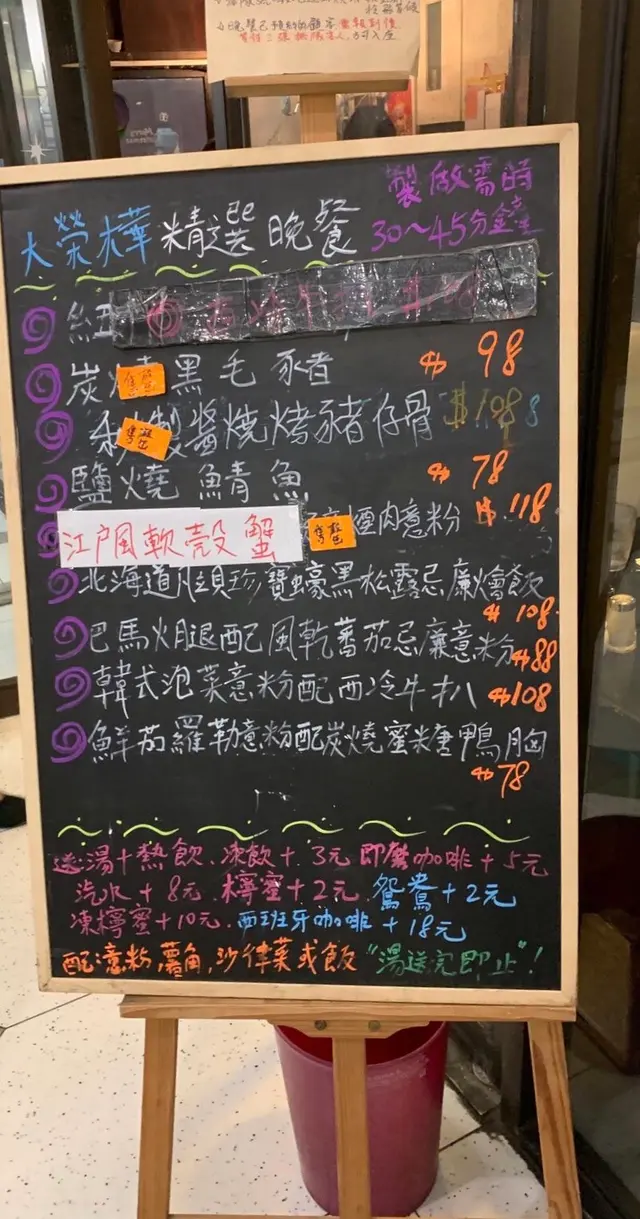 大榮華 精選晚餐
製做需時
30~45分鐘
紅
炭燒黑毛豬 $98
售罄
私製醬燒烤豬仔骨 $108
售罄
鹽燒鯖魚 $78
江戶風軟殼蟹 售罄 煙肉意粉 $118
北海道帶珍寶蠔黑松露忌廉燴飯
$108
巴馬火腿配風乾蕃茄忌廉意粉 $88
韓式泡菜意粉配西冷牛扒 $108
鮮茄羅勒意粉配炭燒蜜糖鴨胸
$78
送:湯+熱飲、凍飲+3元 即磨咖啡+5元
汽水+8元.檸蜜+2元.鴛鴦+2元
凍檸蜜+10元.西班牙咖啡+18元
配:意粉,薯角,沙律菜或飯"湯送完即止"!